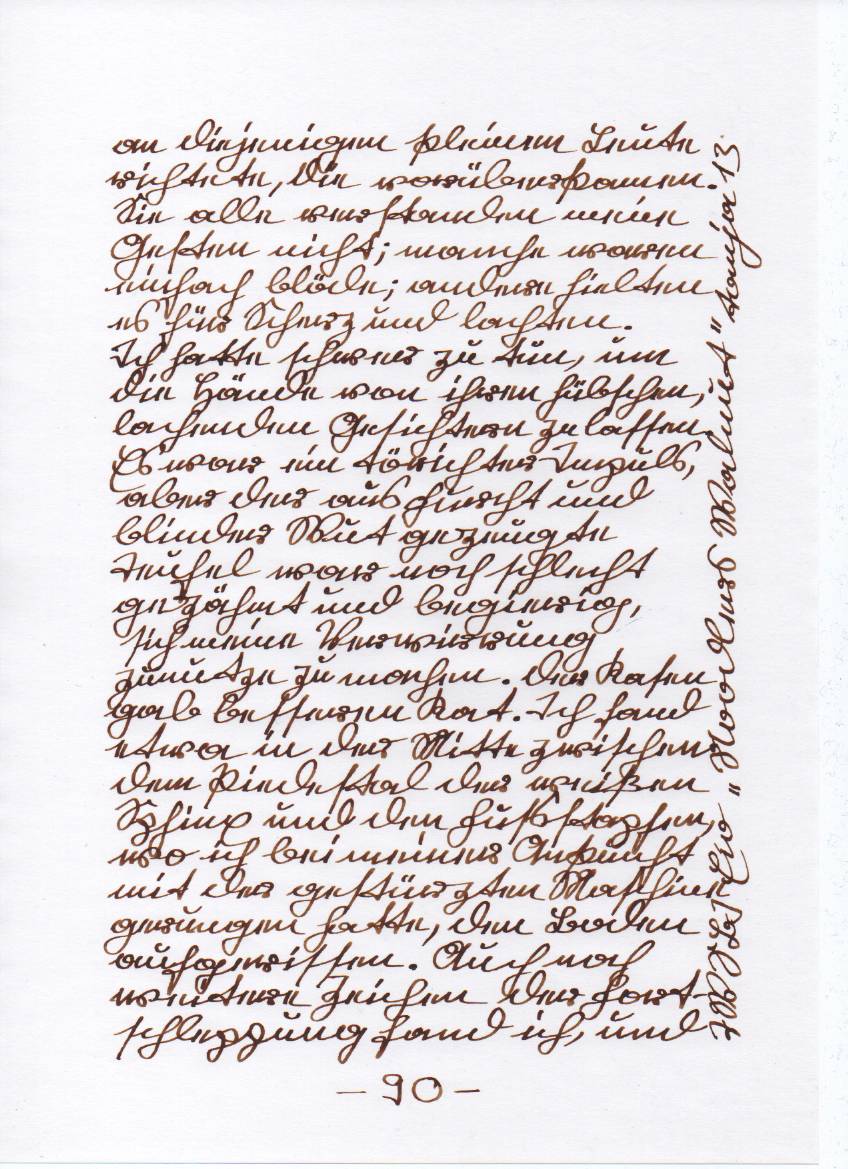 an diejenigen kleinen Leute
richtete, die vorüberkamen.
Sie alle verstanden meine
Gesten nicht; manche waren
einfach blöde; andere hielten
es für Scherz und lachten.
Ich hatte schwer zu tun, um
die Hände von ihren hübschen,
lachenden Gesichtern zu lassen.
Es war ein törichter Impuls,
aber der aus Furcht und
blinder Wut gezeugte
Teufel war noch schlecht
gezähmt und begierig,
sich meine Verwirrung
zunutze zu machen. Der Rasen
gab besseren Rat. Ich fand
etwa in der Mitte zwischen
dem Piedestal der weißen
Sphinx und den Fußstapfen,
wo ich bei meiner Ankunft
mit der gestürzten Maschine
gerungen hatte, den Boden
aufgerissen. Auch noch
weitere Zeichen der Fort-
schleppung fand ich, und
- 90 -
"Noodlers Walnut" tanja 13